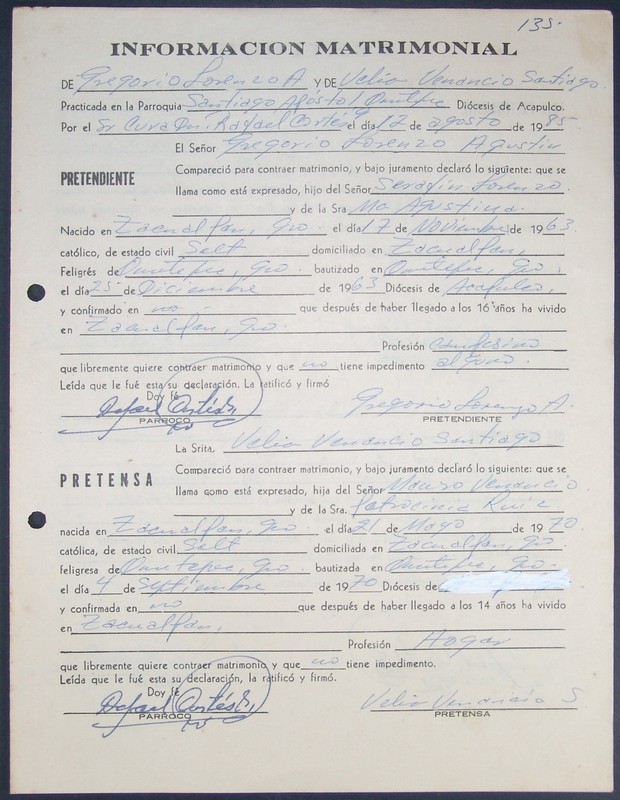 135.
INFORMACION MATRIMONIAL
DE Gregorio Lorenzo A Y DE Velia Venancio Santiago.
Practicada en la Parroquia Santiago Apóstol Ometepec Diócesis de Acapulco.
Por el Sr Cura Dn. Rafael Cortés el día 17 de agosto de 1985
El Señor Gregorio Lorenzo Agustin
PRETENDIENTE
Compareció para contraer matrimonio, y bajo juramento declaró lo siguiente: que se
llama como está expresado, hijo del Señor Serafin Lorenzo.
y de la Sra. Ma Agustina.
Nacido en Zacualpan, Gro. el día 17 de Noviembre de 1963
católico, de estado civil Solt domiciliado en Zacualpan,
Feligrés de Ometepec, Gro bautizado en Ometepec, Gro.
el día 25 de Diciembre de 1963 Diócesis de Acapulco,
y confirmado en no. que después de haber llegado a los 16 años ha vivido
en Zacualpan, Gro.
Profesión campesino
que libremente quiere contraer matrimonio y que no tiene impedimento alguno.
Leída que le fué esta su declaración. La ratificó y firmó
Doy fé
Rafael Cortés Gregorio Lorenzo A.
PARROCO PRETENDIENTE
La Srita, Velia Venancio Santiago
PRETENSA
Compareció para contraer matrimonio, y bajo juramento declaró lo siguiente: que se
llama como está expresado, hija del Señor Mauro Venancio
y de la Sra. Patrocinia Ruiz
nacida en Zacualpan, Gro. el día 21 de Mayo de 1970
católica, de estado civil Solt domiciliada en Zacualpan, Gro
feligresa de Ometepec, Gro. bautizada en Ometepec, Gro.
el día 4 de Septiembre de 1970 Diócesis de
y confirmada en no que después de haber llegado a los 14 años ha vivido
en Zacualpan,
Profesión Hogar
que libremente quiere contraer matrimonio y que no tiene impedimento.
Leída que le fué esta su declaración, la ratificó y firmó.
Doy fé
Rafael Cortés Velia Venancio S
PARROCO PRETENSA